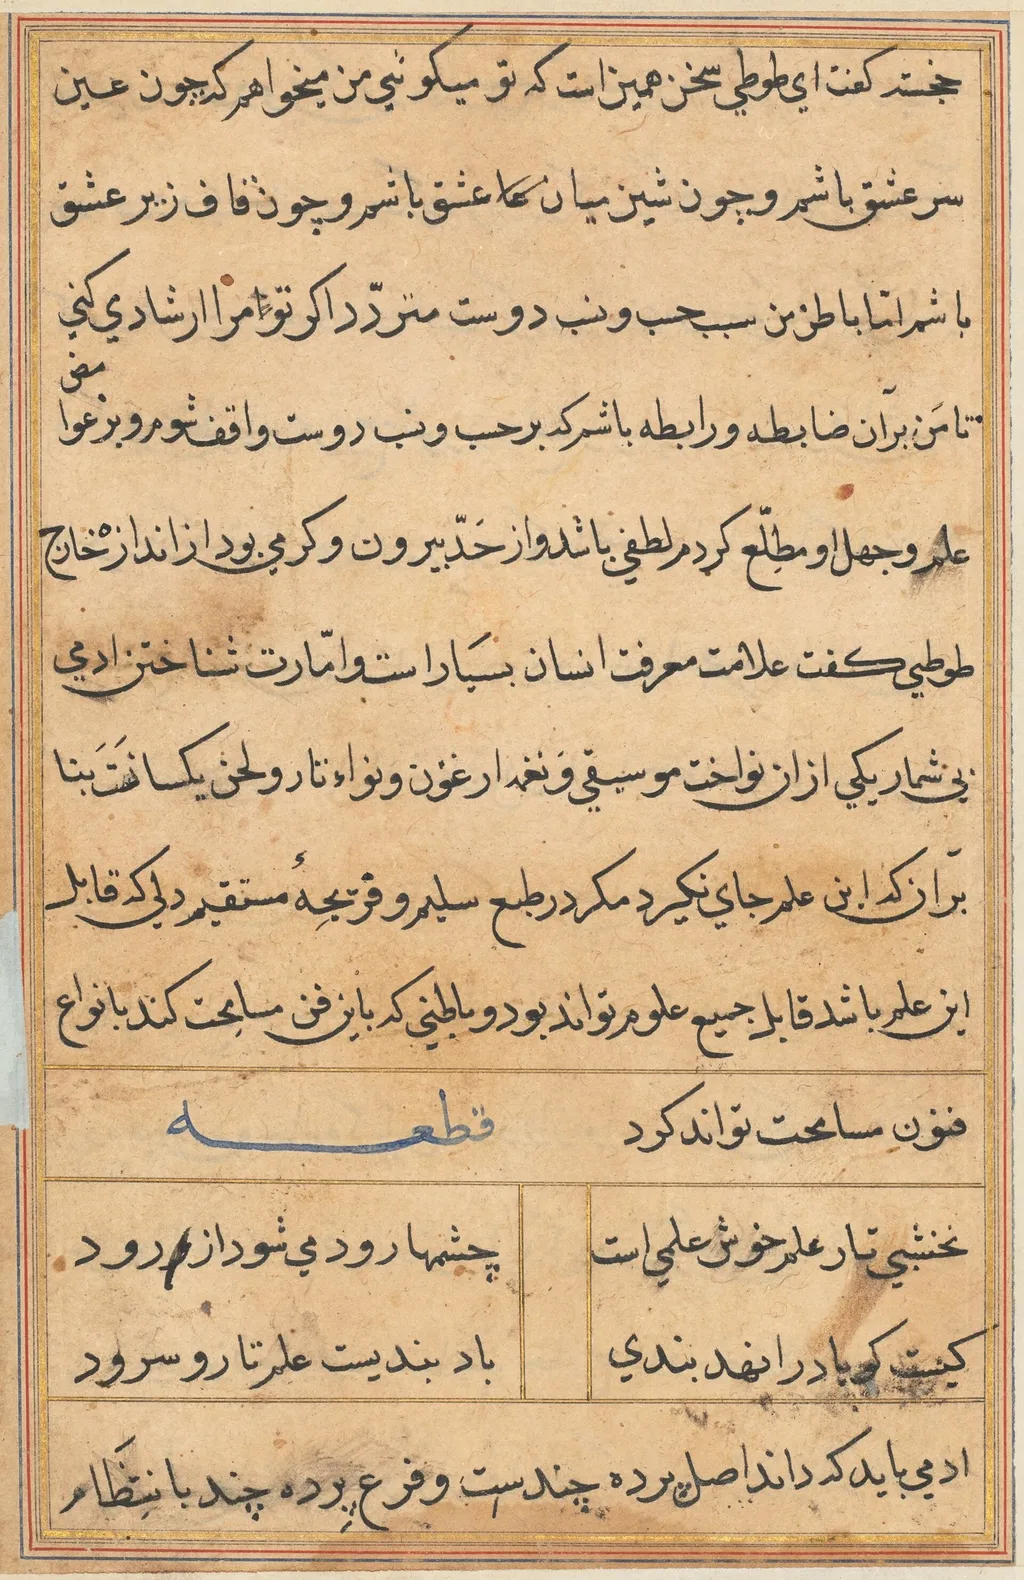 خجسته کفت ای طوطی سخن همین است که تو میکوئی من میخواهم که چون عین
سر عشق باشم و چون شین میان عشق باشم و چون قاف زیر عشق
باشم اما باطن من سبب حسب و نسب دوست متردّد اکر تو مرا ارشادی کنی
تا من بر آن ضابطه و رابطه باشم که بر حسب و نسب دوست واقف شوم و بر غوامض
علم و جهل او مطّلع کردم لطفی باشد از حَدّ بیرون و کرمی بود از اندازه خارج
طوطی کفت علامت معرفت انسان بسیار است و امّارت شناختن ادمی
بی شمار یکی از ان نواخت موسیقی و نغمه ارغنون و نواء تار و لحن یکسانست بنا
بر آن که این علم جای نکیرد مکر در طبع سلیم و قریحهٔ مستقیم دلی که قابل
این علم باشد قابل جمیع علوم تواند بود و باطنی که باین فن مسامحت کند بانواع
فنون مسامحت تواند کرد
قطعه
نخشبی تار علم خوش علمی است چشمها رود می شود از رود
کیست کو باد را نهد بندی باد بندیست علم تار و سرود
ادمی باید که داند اصل پرده چندست و فرع پرده چند با نتظام